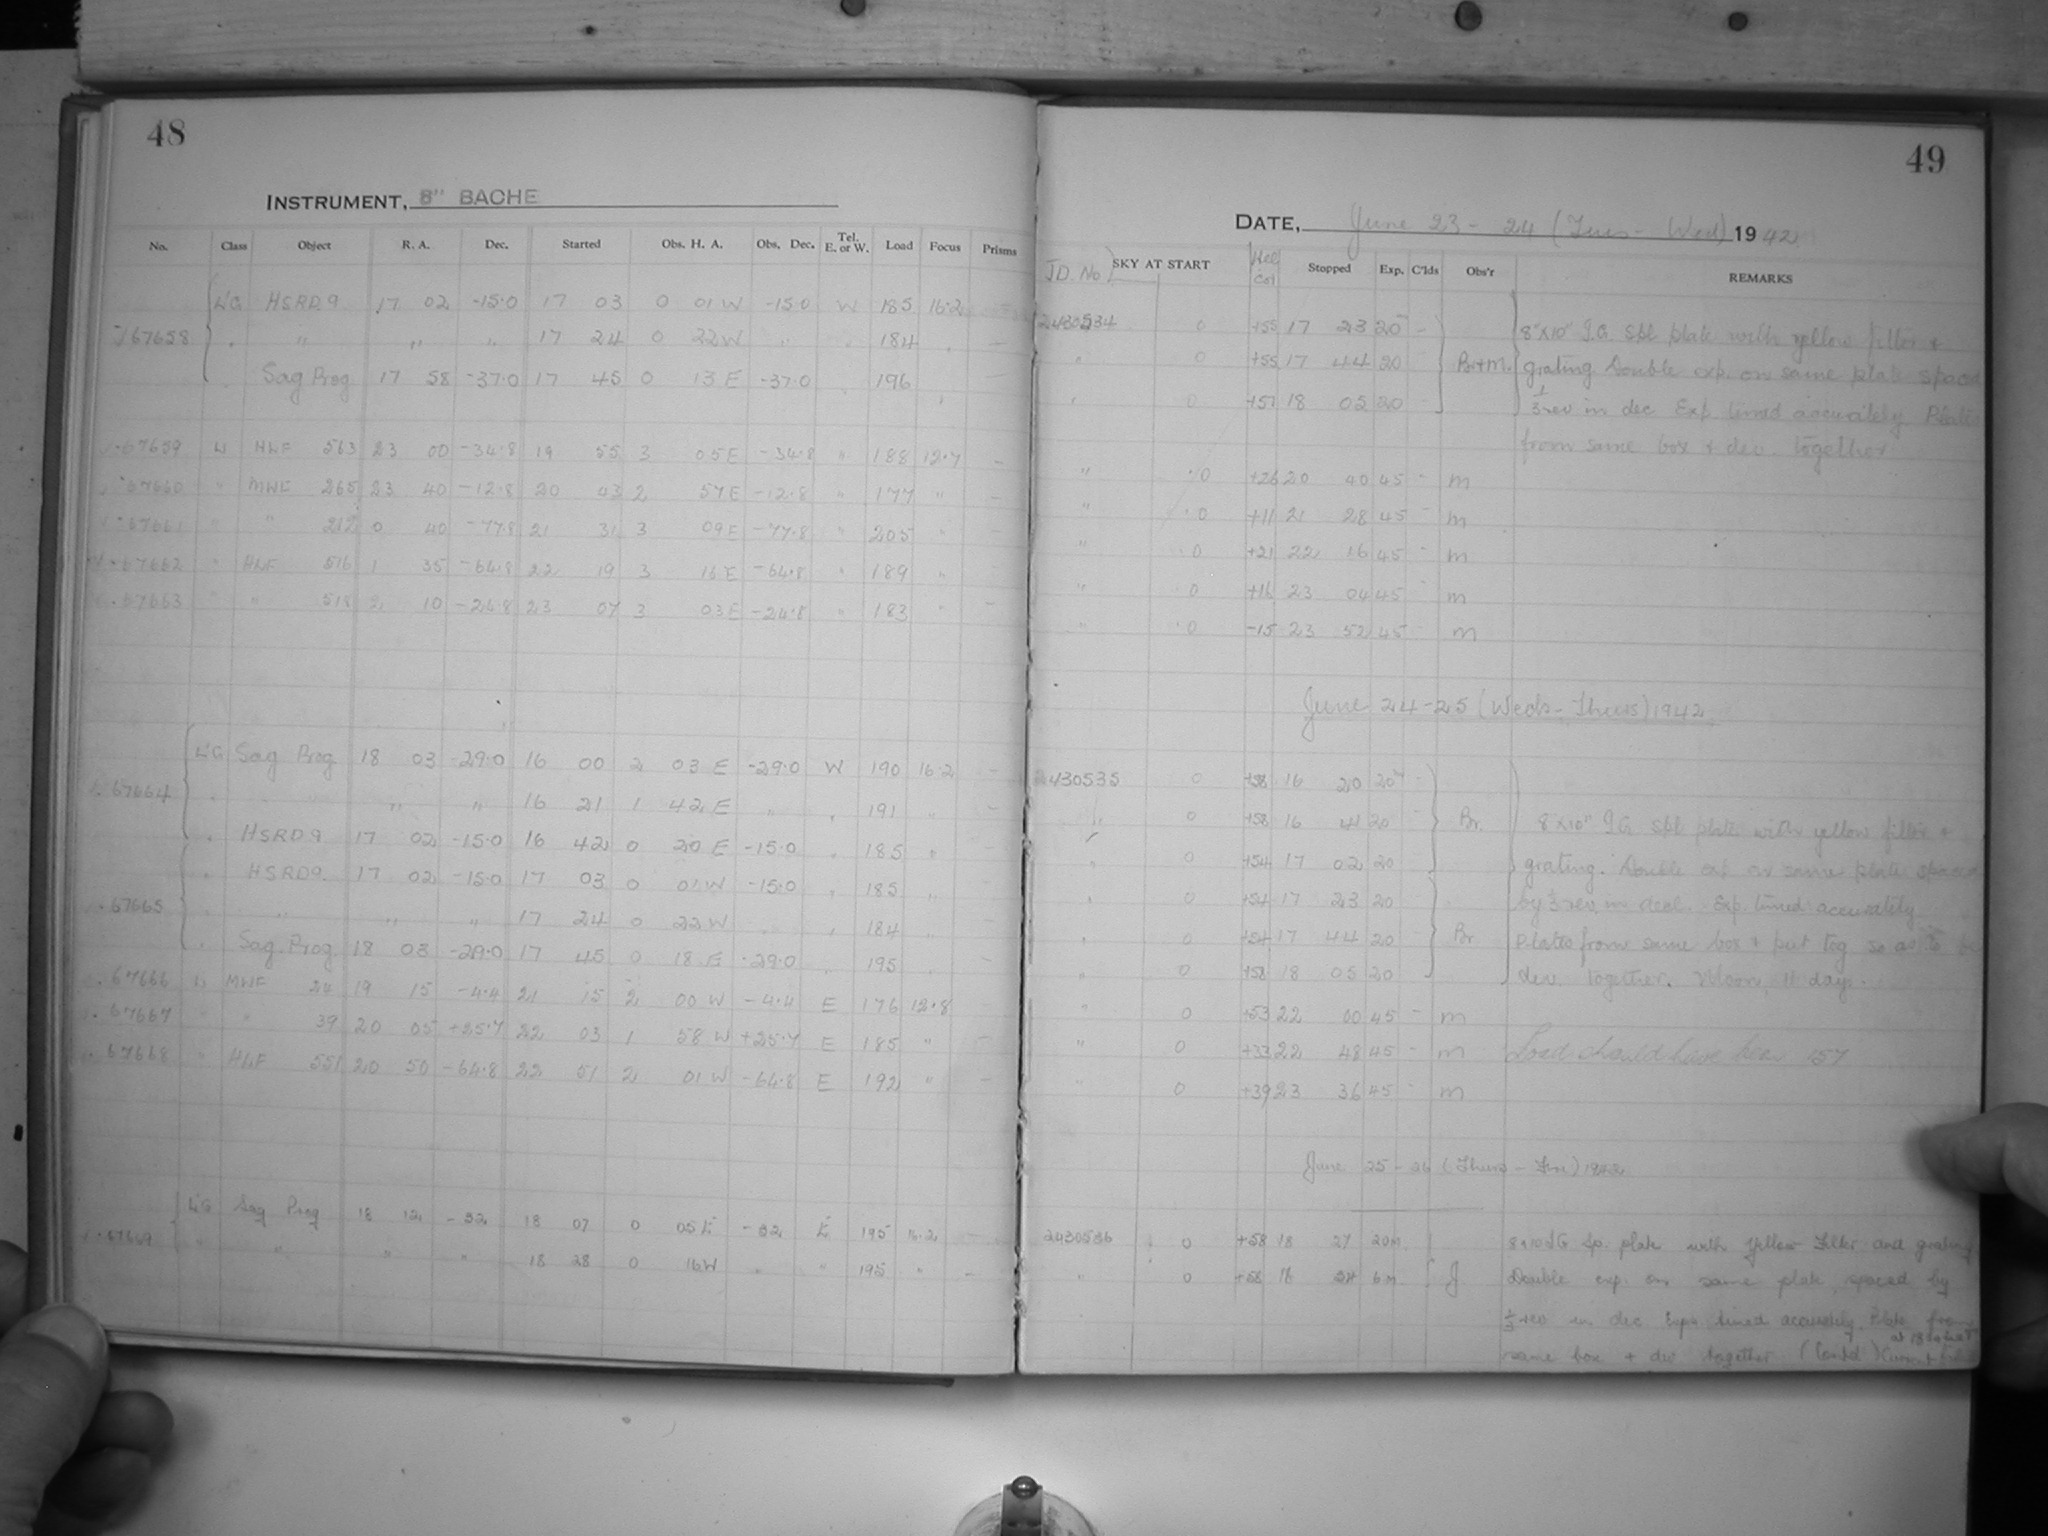 48
INSTRUMENT, 8" BACHE
No. Class Object R. A. Dec. Started Obs. H. A. Obs. Dec. Tel. E. or W. Load Focus Prisms
HSRD9 17 02 -15.0 17 03 0 01 W -15.0 W 185 16.2
67658 " " " 17 24 0 22 W " 184
Sag Prog 17 58 -37.0 17 45 0 13 E -37.0 196
67659 HLF 563 23 00 -34.8 19 55 3 05 E -34.8 " 188 12.7 -
67660 " MWF 265 23 40 -12.8 20 43 2 57 E -12.8 " 177 " -
67661 " " 0 40 -77.8 21 31 3 09 E -77.8 " 205 " -
67662 " HLF 516 1 35 -64.8 22 19 3 16 E -64.8 " 189 "
67663 " " 518 2 10 -24.8 23 07 3 03 E -24.8 " 183 " -
Sag Prog 18 03 -29.0 16 00 2 03 E -29.0 W 190 16.2 -
67664 " " 16 21 1 42 E " 191 " -
HSRD9 17 02 -15.0 16 42 0 20 E -15.0 185 -
HSRD9. 17 02 -15.0 17 03 0 01 W -15.0 185 -
67665 " " " 17 24 0 22 W 184
Sag. Prog. 18 03 -29.0 17 45 0 18 E -29.0 195 -
67666 MWF 24 19 15 -4.4 21 15 2 00 W -4.4 E 176 12.8 -
67667 " " 39 20 05 +25.7 22 03 1 58 W +25.7 E 185 " -
67668 " HLF 551 20 50 -64.8 22 51 2 01 W -64.8 E 192 " -
Sag Prog 18 12 -32 18 07 0 05 E -32 E 195 16.2
67669 " " " 18 28 0 16 W " 195 " -
49
DATE, June 23 - 24 (Tues - Wed) 1942
JD. No SKY AT START Hel Cor Stopped Exp. C'lds Obs'r REMARKS
2430534 0 +55 17 23 20 - 8"x10" I.G. spl plate with yellow filter +
" 0 +55 17 44 20 Br+M. grating Double exp. on same plate spaced
" 0 +57 18 05 20 1/3 rev in dec Exp timed accurately Plates
from same box + dev. together
" 0 +26 20 40 45 - m
" 0 +11 21 28 45 - m
" 0 +21 22 16 45 - m
" 0 +16 23 04 45 m
" 0 -15 23 52 45 - m
June 24-25 (Weds-Thurs) 1942
2430535 0 +58 16 20 20 -
0 +58 16 41 20 Br. 8"x10" I.G. spl plate with yellow filter +
" 0 +54 17 02 20 grating. Double exp on same plate spaced
" 0 +54 17 23 20 by 1/3 rev. in decl. Exp. timed accurately
" 0 +54 17 44 20 Br Plates from same box + put tog so as to be
" 0 +58 18 05 20 dev. together. Moon 11 days.
" 0 +53 22 00 45 - m
" 0 +33 22 48 45 - m Load should have been 157
" 0 +39 23 36 45 - m
June 25-26 (Thurs - Fri) 1942
2430536 0 +58 18 27 20m 8x10 IG Sp. plate with Yellow Filter and grating
" 0 +58 18 34 6m J Double exp. on same plate, spaced by
1/3 rev in dec Exps timed accurately. Plate from
same box + dev together (Contd)